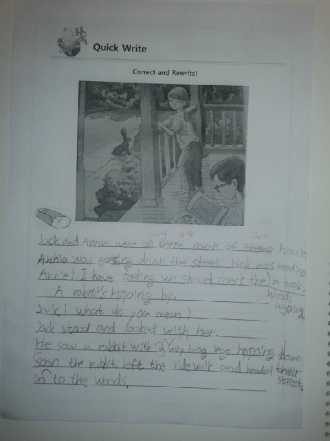 Quick Write
Correct and Rewrite!
Jack and Annie were on their porch of house
Annie was gazing down the street. Jack was reading
Annie! I have feeling we should check the a book.
woods
again
A rabbit's hopping by.
Jack! What do you mean?
Jack stood and looked with her.
He saw a rabbit with a very long legs hopping down
Soon the rabbit left the and headed their
street
in to the woods.